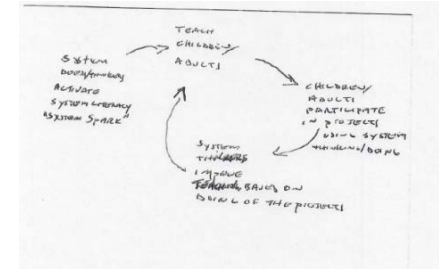 TEACH
CHILDREN/
ADULTS
System
DOERS/THINKERS
ACTIVATE
SYSTEM LITERACY
"SYSTEM SPARK"
CHILDREN/
ADULTS
PARTICIPATE
IN PROJECTS
USING SYSTEM
THINKING/DOING
SYSTEM
THINKERS
IMPROVE
BASED ON
DOING OF THE PROJECTS